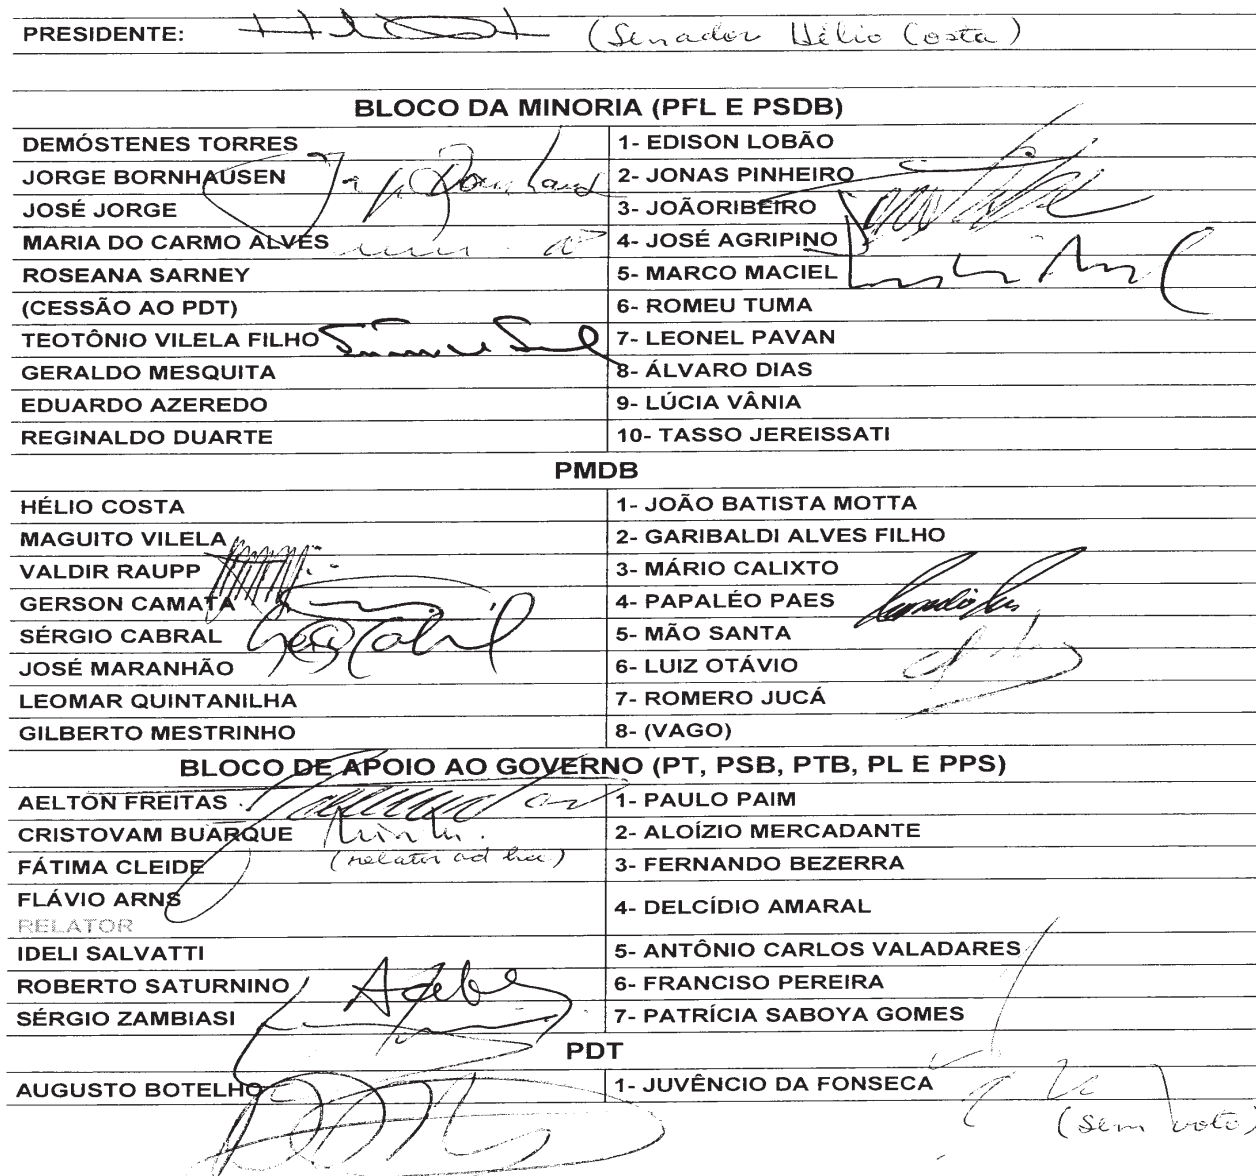 PRESIDENTE: (Senador Hélio Costa)
BLOCO DA MINORIA (PFL E PSDB)
DEMÓSTENES TORRES 1- EDISON LOBÃO
JORGE BORNHAUSEN 2- JONAS PINHEIRO
JOSÉ JORGE 3- JOÃORIBEIRO
MARIA DO CARMO ALVES 4- JOSÉ AGRIPINO
ROSEANA SARNEY 5- MARCO MACIEL
(CESSÃO AO PDT) 6- ROMEU TUMA
TEOTÔNIO VILELA FILHO 7- LEONEL PAVAN
GERALDO MESQUITA 8- ÁLVARO DIAS
EDUARDO AZEREDO 9- LÚCIA VÂNIA
REGINALDO DUARTE 10- TASSO JEREISSATI
PMDB
HÉLIO COSTA 1- JOÃO BATISTA MOTTA
MAGUITO VILELA 2- GARIBALDI ALVES FILHO
VALDIR RAUPP 3- MÁRIO CALIXTO
GERSON CAMATA 4- PAPALÉO PAES
SÉRGIO CABRAL 5- MÃO SANTA
JOSÉ MARANHÃO 6- LUIZ OTÁVIO
LEOMAR QUINTANILHA 7- ROMERO JUCÁ
GILBERTO MESTRINHO 8- (VAGO)
BLOCO DE APOIO AO GOVERNO (PT, PSB, PTB, PL E PPS)
AELTON FREITAS 1- PAULO PAIM
CRISTOVAM BUARQUE 2- ALOÍZIO MERCADANTE
FÁTIMA CLEIDE (relator ad hoc) 3- FERNANDO BEZERRA
FLÁVIO ARNS 4- DELCÍDIO AMARAL
RELATOR
IDELI SALVATTI 5- ANTÔNIO CARLOS VALADARES
ROBERTO SATURNINO 6- FRANCISO PEREIRA
SÉRGIO ZAMBIASI 7- PATRÍCIA SABOYA GOMES
PDT
AUGUSTO BOTELHO 1- JUVÊNCIO DA FONSECA
(sem voto)